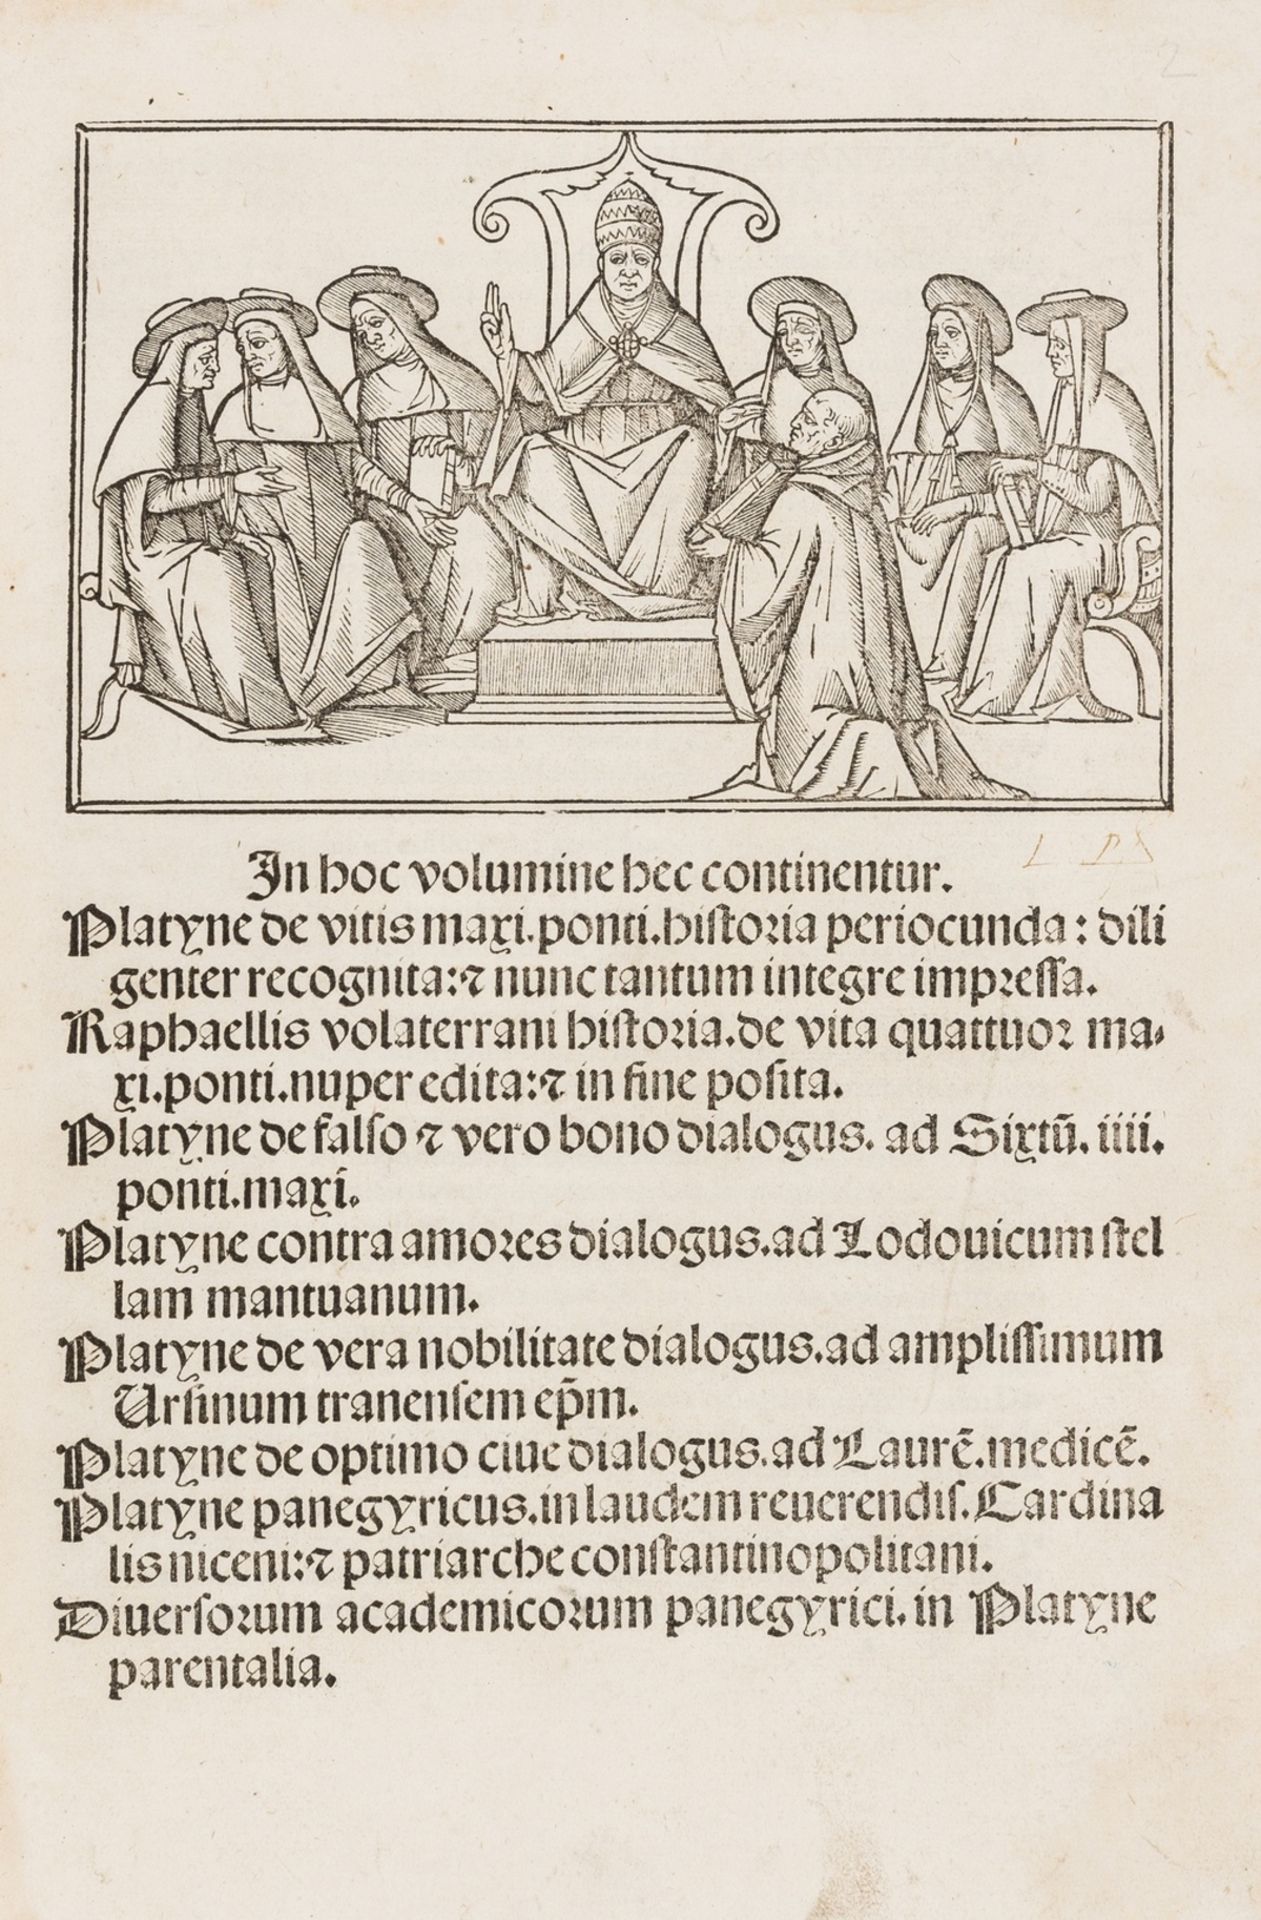 In hoc volumine hec continentur.
Platyne de vitis maxi.ponti.historia periocunda: dili
genter recognita:⁊ nunc tantum integre impressa.
Raphaellis volaterrani historia.de vita quattuor ma⸗
xi.ponti.nuper edita:⁊ in fine posita.
Platyne de falso ⁊ vero bono dialogus. ad Sixtū. iiii.
ponti.maxī.
Platyne contra amores dialogus.ad Lodouicum stel
lam mantuanum.
Platyne de vera nobilitate dialogus.ad amplissimum
Ursinum tranensem ep̄m.
Platyne de optimo ciue dialogus.ad Laurē.medicē.
Platyne panegyricus.in laudem reuerendis. Cardina
lis niceni:⁊ patriarche constantinopolitani.
Diuersorum academicorum panegyrici.in Platyne
parentalia.